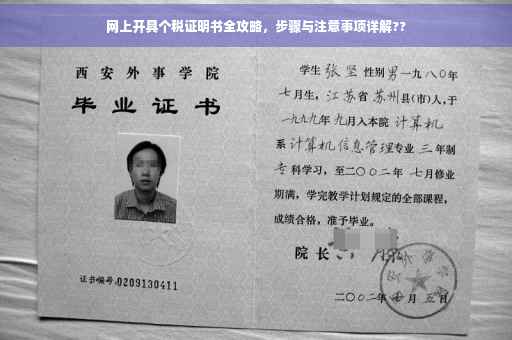 网上开具个税证明书全攻略，步骤与注意事项详解??
西安外事学院
毕业证书
证书编号:0209130411
学生 张坚 性别 男 一九八〇年
七月生，江苏省苏州县(市)人，于
一九九九年九月入本院 计算机
系 计算机信息管理专业 三 年制
专 科学习，至二〇〇二年 七月修业
期满，学完教学计划规定的全部课程，
成绩合格，准予毕业。
院长
二〇〇二年 月 五日